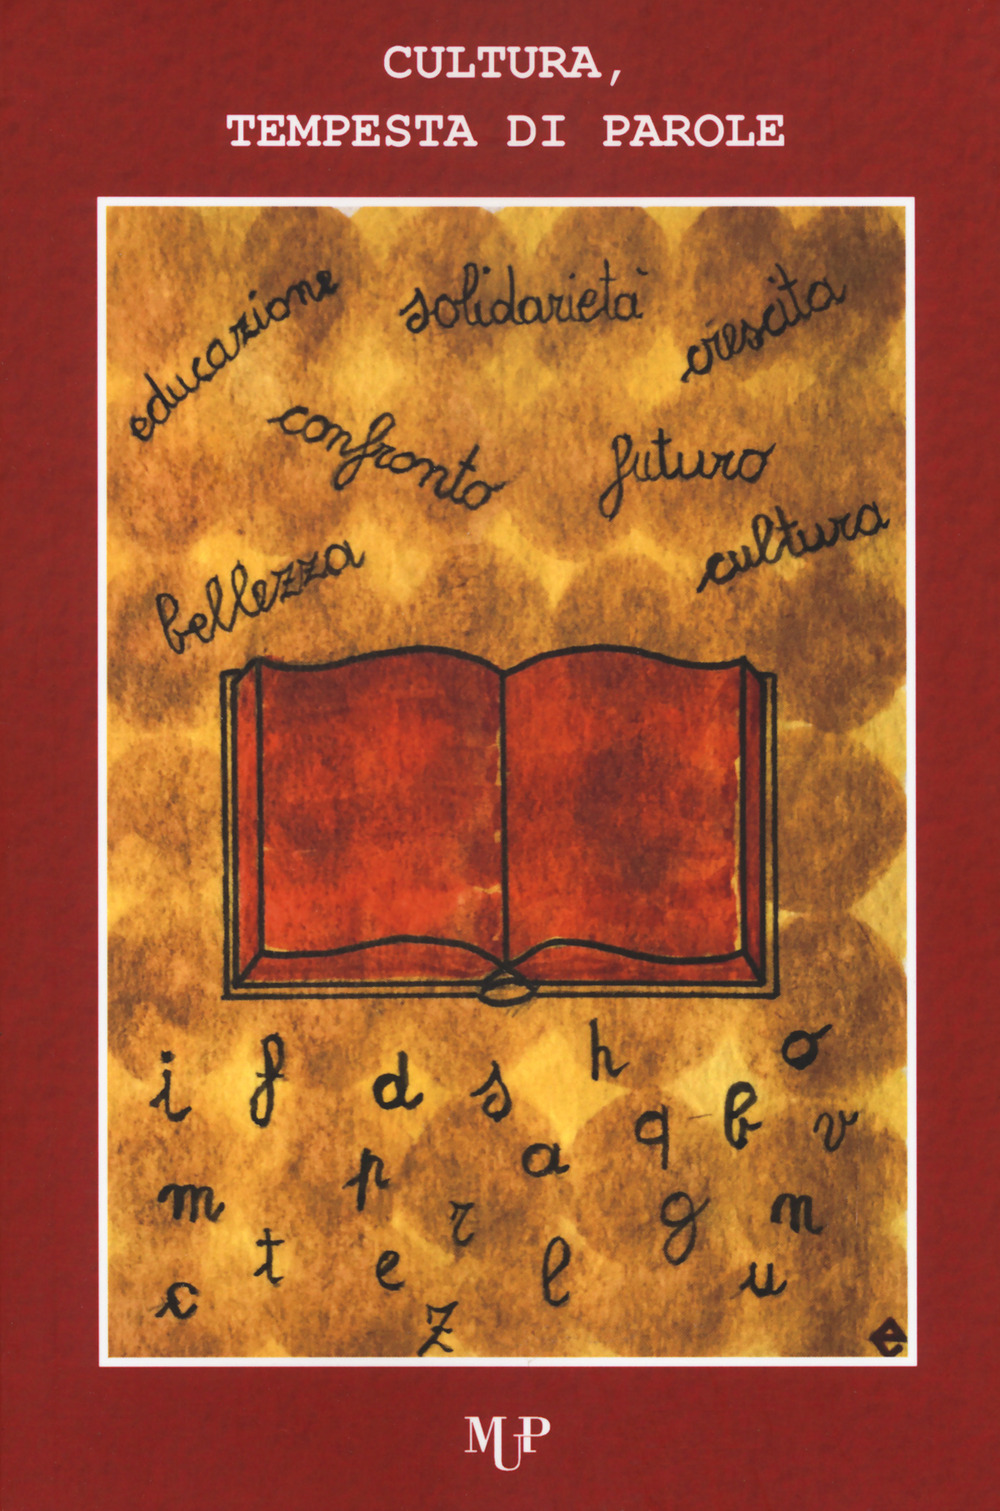 CULTURA,
TEMPESTA DI PAROLE
educazione
solidarietà
crescita
confronto
futuro
cultura
bellezza
i f d s h o
p a q b v
m r g n
t e l u
c z e
MUP